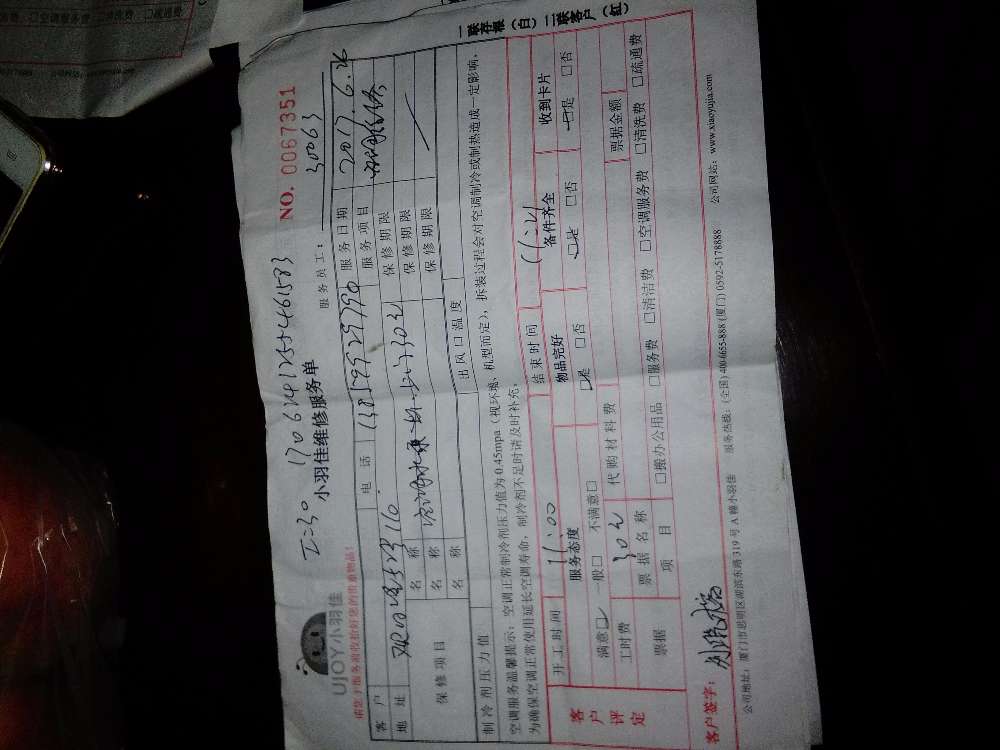 一联存根（白）二联客户（红）
NO. 0067351
工=30 1706141755461583
小羽佳维修服务单
服务员工： 30063
UJOY小羽佳
请您于服务前收拾好您的贵重物品！
客户
电话
18759529790
服务日期 2017.6.26
地址
服务项目
保修项目
名称
保修期限
名称
保修期限
名称
保修期限
制冷剂压力值
出风口温度
空调服务温馨提示：空调正常制冷剂压力值为0.45mpa（视环境、机型而定），拆装过程会对空调制冷或制热造成一定影响，
为确保空调正常使用延长空调寿命，制冷剂不足时请及时补充。
客户评定
开工时间 11:00
结束时间
服务态度
物品完好
备件齐全
收到卡片
满意□ 一般□ 不满意□
□是 □否
□是 □否
□是 □否
工时费 30元
代购材料费
票据金额
票据
票据名称
项目
□搬办公用品 □服务费 □清洁费 □空调服务费 □清洗费 □疏通费
客户签字：
公司地址：厦门市思明区湖滨东路319号A幢小羽佳 服务热线：(全国) 400-6655-888 (厦门) 0592-5178888 公司网站：www.xiaoyujia.com